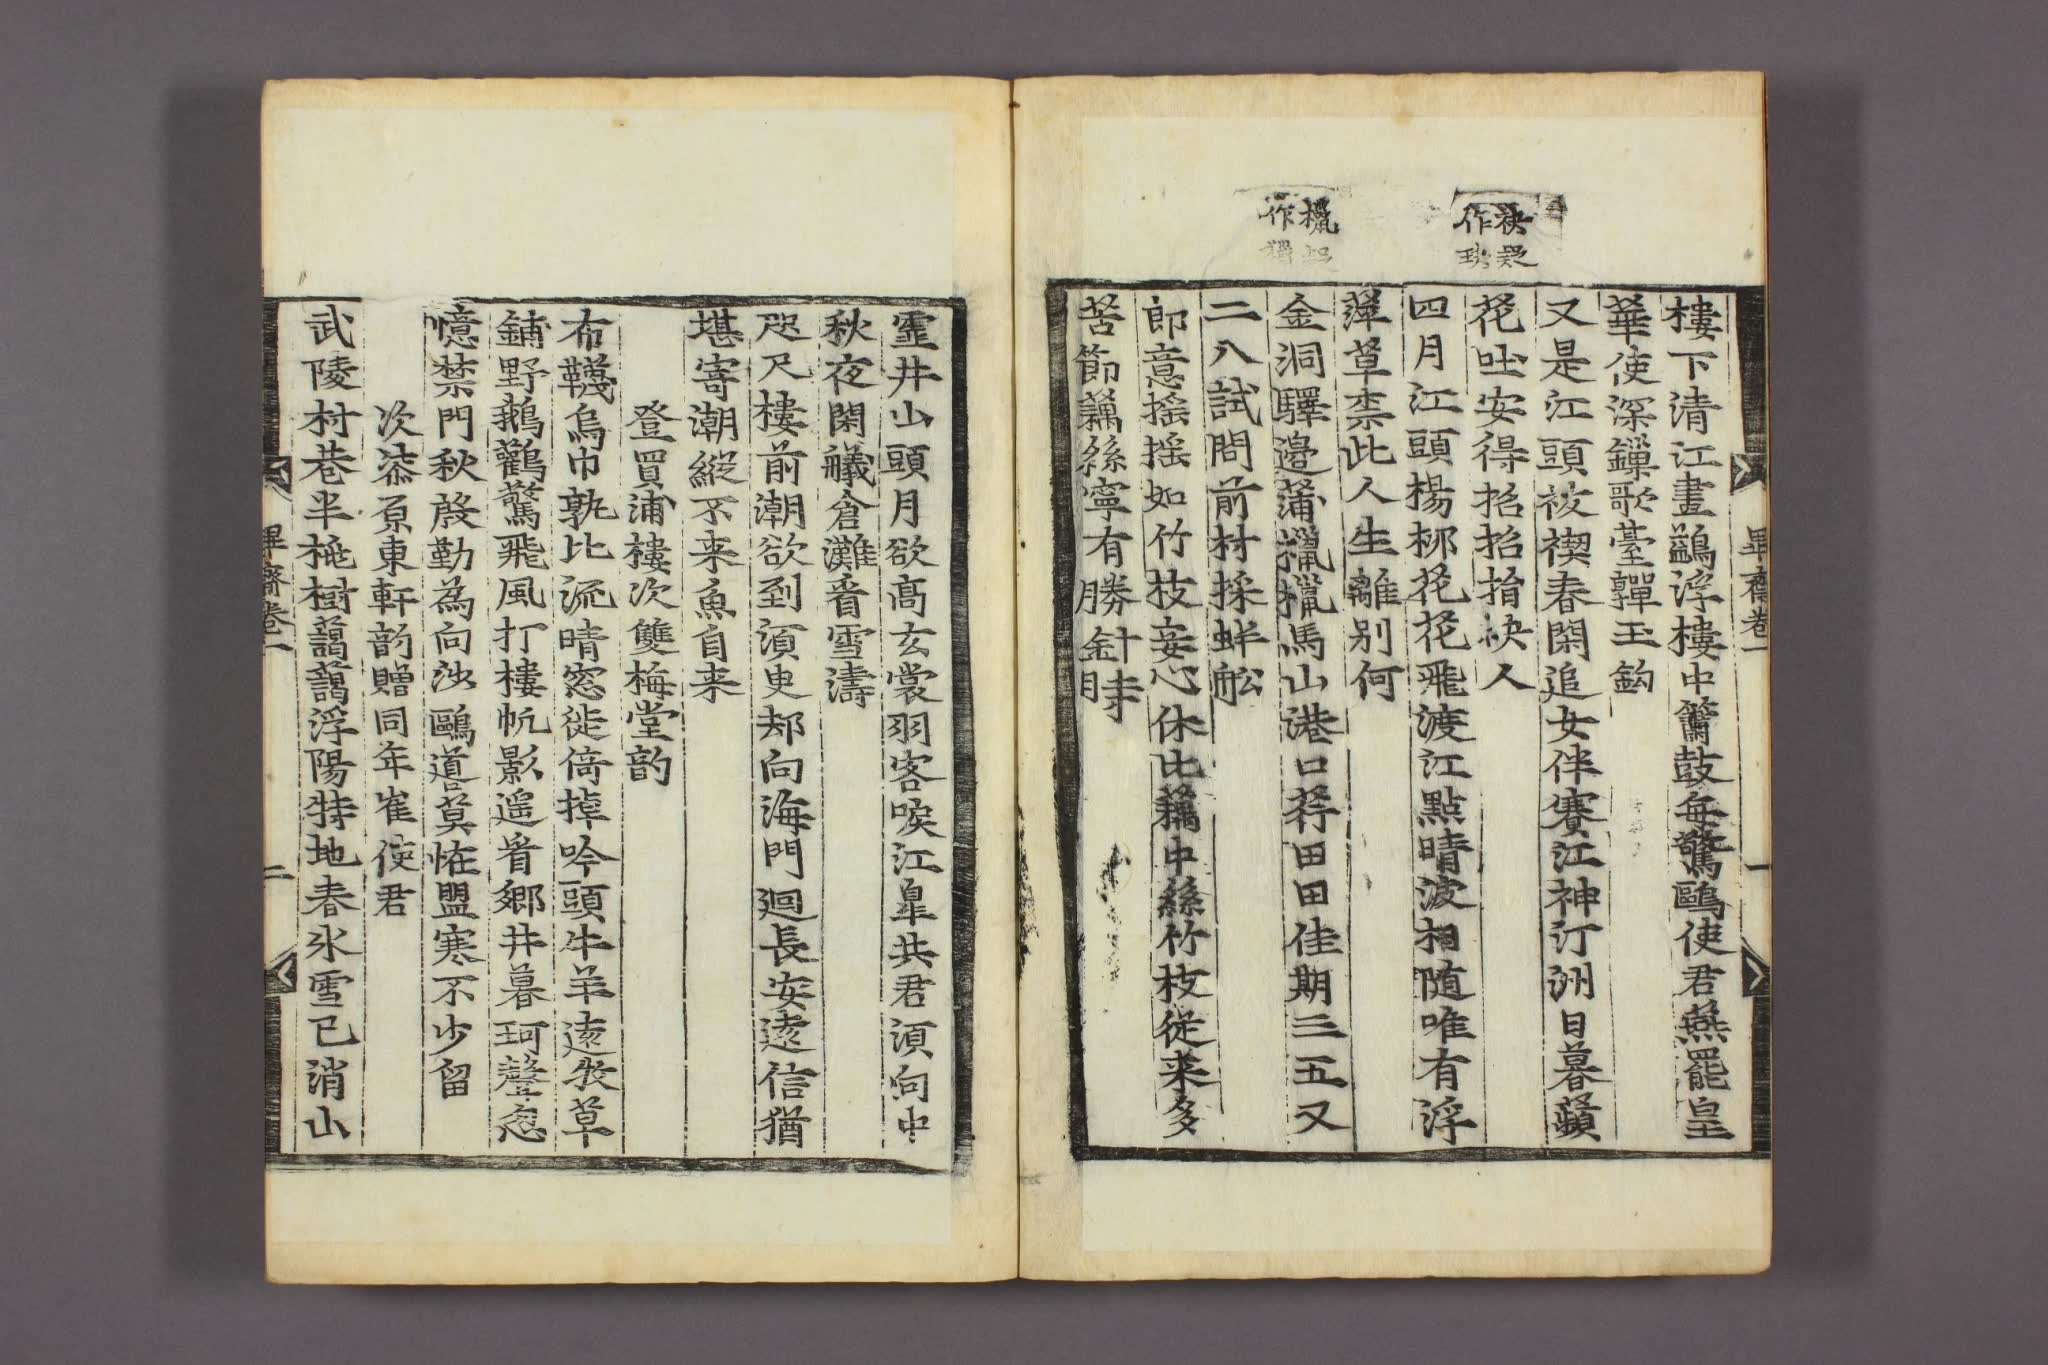 樓下清江畫鷁浮樓中簫鼓每驚鷗使君燕罷皇
華使深鏁歌臺嚲玉鈎
又是江頭祓禊春閑追女伴賽江神汀洲日暮蘋
花吐安得招招指袂人
四月江頭楊柳花花飛渡江點晴波相隨唯有浮
萍草柰此人生離别何
金洞驛邉蒲擸擸馬山港口荇田田佳期三五又
二八試問前村採蚌舩
郎意摇摇如竹枝妾心休比藕中絲竹枝従来多
苦節藕絲寧有勝針時
袂疑
作玦
擸恐
作獵
畢齋卷一
一
霊井山頭月欲高玄裳羽客唳江皐共君湏向中
秋夜閑艤倉灘看雪濤
咫尺樓前潮欲到須臾却向海門廻長安遠信猶
堪寄潮縱不来魚自来
登買浦樓次雙梅堂韵
布韈烏巾孰比流晴窓徙倚掉吟頭牛羊遠牧草
鋪野鵝鸛驚飛風打樓帆影遥看郷井暮珂聲忽
憶禁門秋殷勤為向沙鷗道莫怪盟寒不少留
次漆原東軒韵贈同年崔使君
武陵村巷半桃樹藹藹浮陽特地春氷雪已消山
畢齋卷一
二